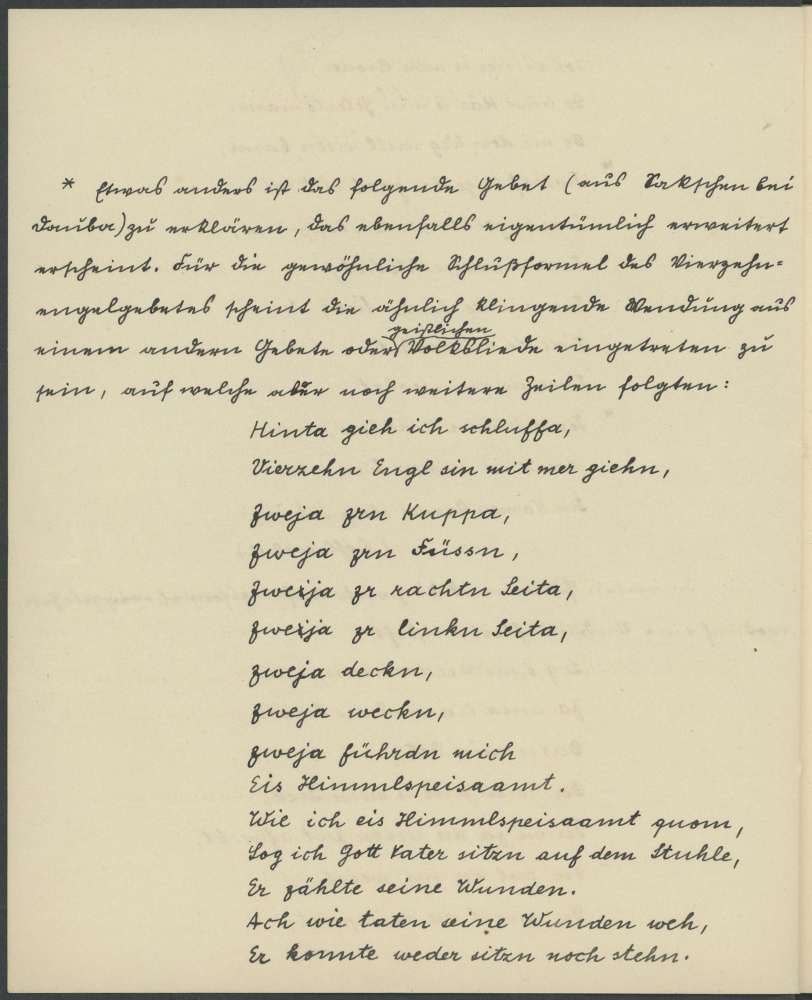 * Etwas anders ist das folgende Gebet (aus Sakschen bei
Dauba) zu erklären, das ebenfalls eigentümlich erweitert
erscheint. Für die gewöhnliche Schlußformel des Vierzehn-
engelgebetes scheint die ähnlich klingende Wendung aus
geistlichen
einem andern Gebete oder Volksliede eingetreten zu
sein, auf welche aber noch weitere Zeilen folgten:
Hinta gieh ich schluffa,
Vierzehn Engl sin mit mer giehn,
Zweja zrn Kuppa,
Zweja zrn Füssn,
Zweja zr rachtn Seita,
Zweja zr linkn Seita,
Zweja deckn,
Zweja weckn,
Zweja führdn mich
Eis Himmlspeisaamt.
Wie ich eis Himmlspeisaamt quom,
Sog ich Gott Vater sitzn auf dem Stuhle,
Er zählte seine Wunden.
Ach wie taten seine Wunden weh,
Er konnte weder sitzn noch stehn.